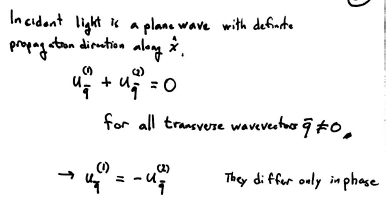 Incident light is a plane wave with definite
propagation direction along x̂.
u_q̄^(1) + u_q̄^(2) = 0
for all transverse wavevectors q̄ ≠ 0.
→ u_q̄^(1) = -u_q̄^(2) They differ only in phase